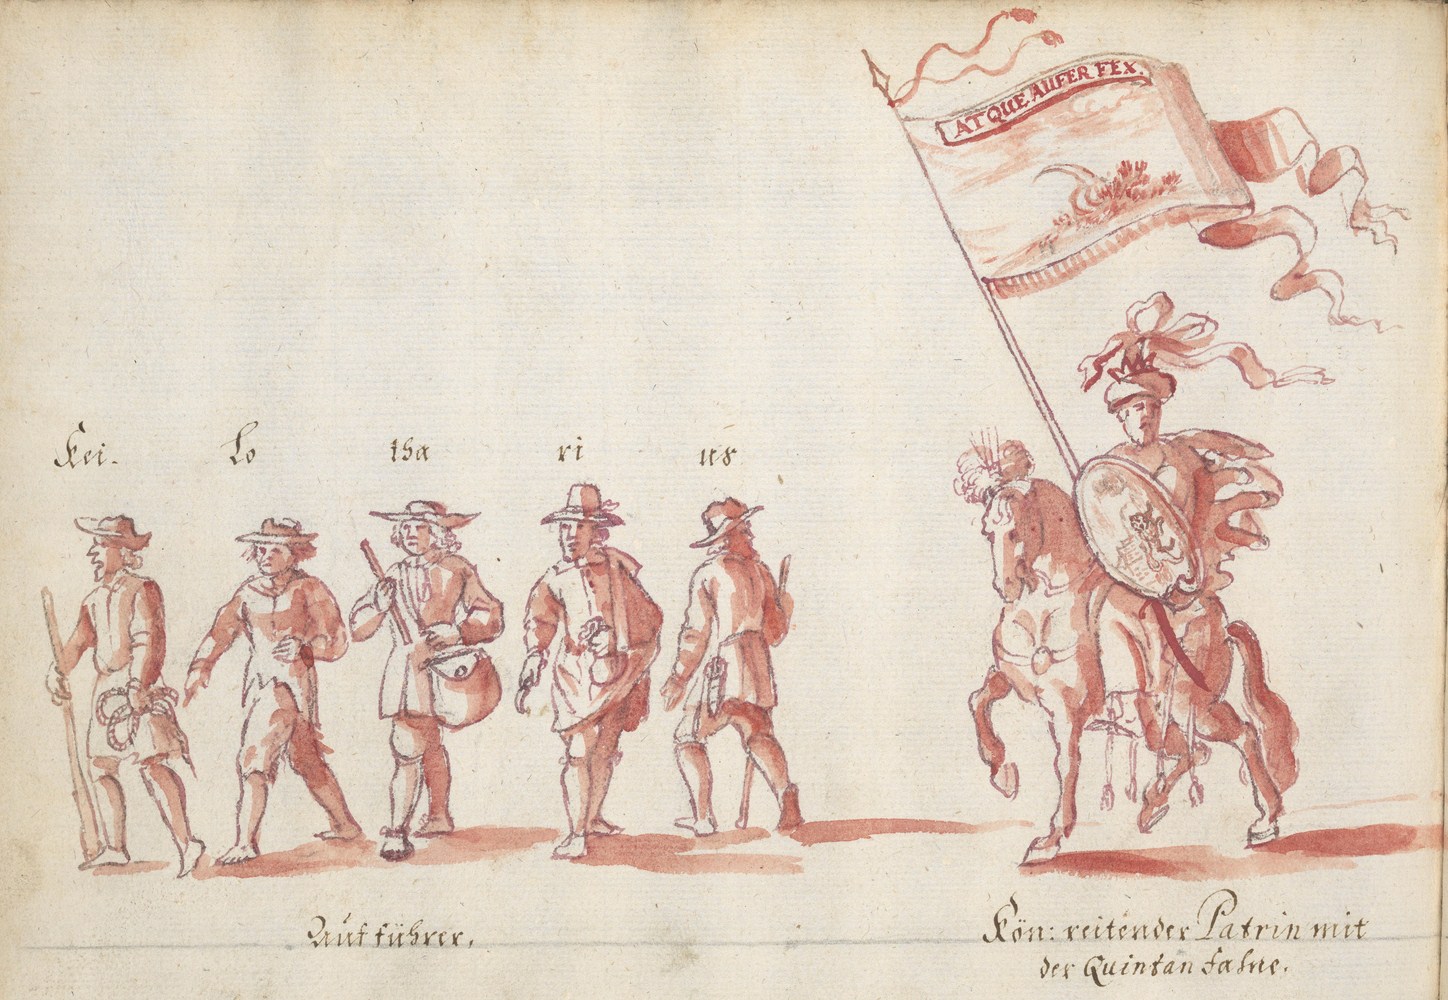 ATQUE AUFER FEX.
Kei. Lo tha ri us
Auf führer.
Kön: reitender Patrin mit
der Quintan fahne.